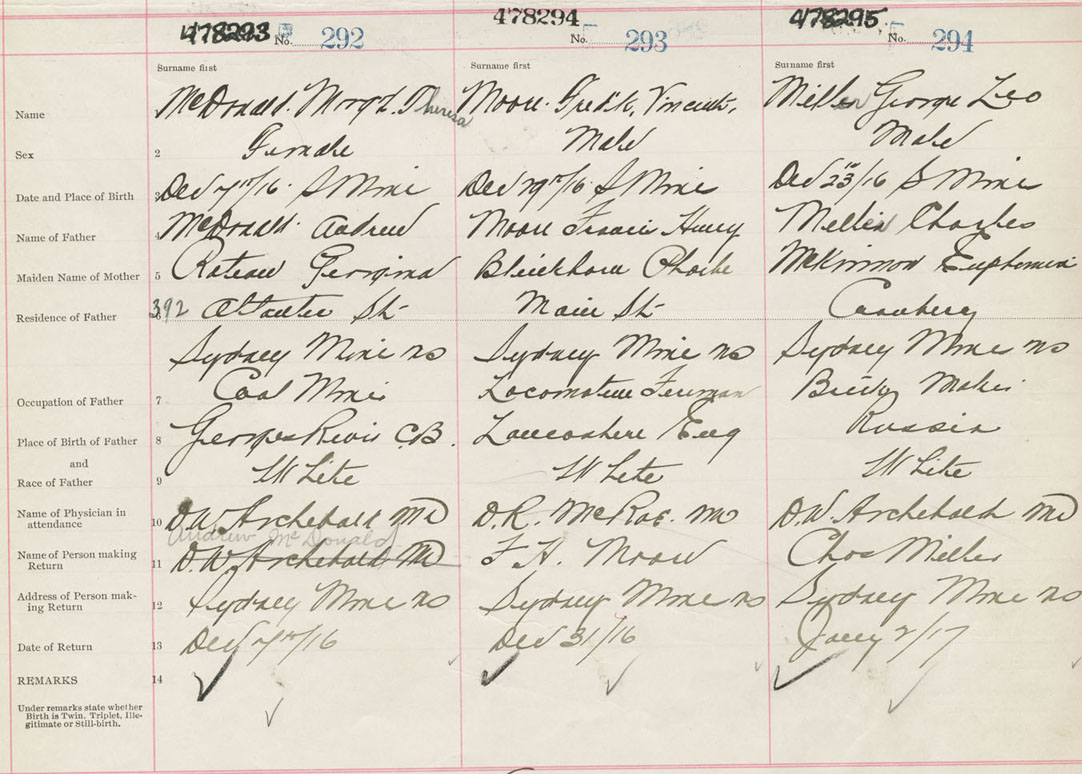 478293 No. 292
478294 No. 293
478295 No. 294
Surname first Surname first Surname first
Name McDonald. Margt. Theresa Moore. Fredk, Vincent, Miller George Leo
Sex 2 Female Male Male
Date and Place of Birth 3 Dec 7th/16. S Mines Dec 19th/16 S Mines Dec 23rd/16 S Mines
Name of Father 4 McDonald. Andrew Moore Francis Harry Miller Charles
Maiden Name of Mother 5 Georgina Blackburn Phoebe McKinnon Euphemia
Residence of Father 6 392 Atlantic St Main St Cranberry
Sydney Mines NS Sydney Mines NS Sydney Mines NS
Occupation of Father 7 Coal Miner Locomotive Fireman Maker
Place of Birth of Father 8 Georges River C.B. Lancashire Eng Russia
and
Race of Father 9 White White White
Name of Physician in
attendance 10 D.W. Archibald MD D.R. McRae. MD D.W. Archibald MD
Andrew McDonald
Name of Person making
Return 11 D.W. Archibald MD F.H. Moore Chas Miller
Address of Person mak-
ing Return 12 Sydney Mines NS Sydney Mines NS Sydney Mines NS
Date of Return 13 Dec 7th/16 Dec 31/16 Jany 2/17
REMARKS 14
Under remarks state whether
Birth is Twin, Triplet, Ille-
gitimate or Still-birth.